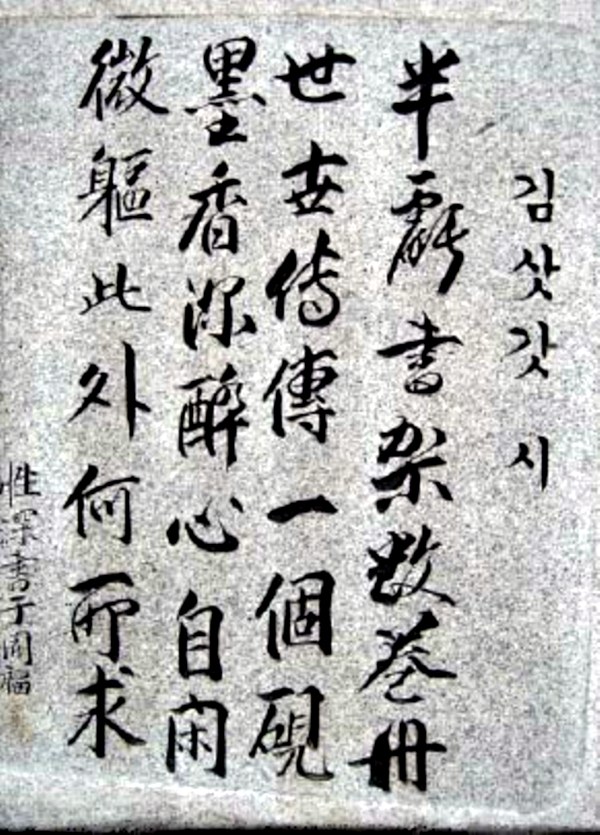 김삿갓 시
半虧書架数卷冊
世世傳傳一個硯
墨香深醉心自閑
微軀此外何所求
惟深書于開福